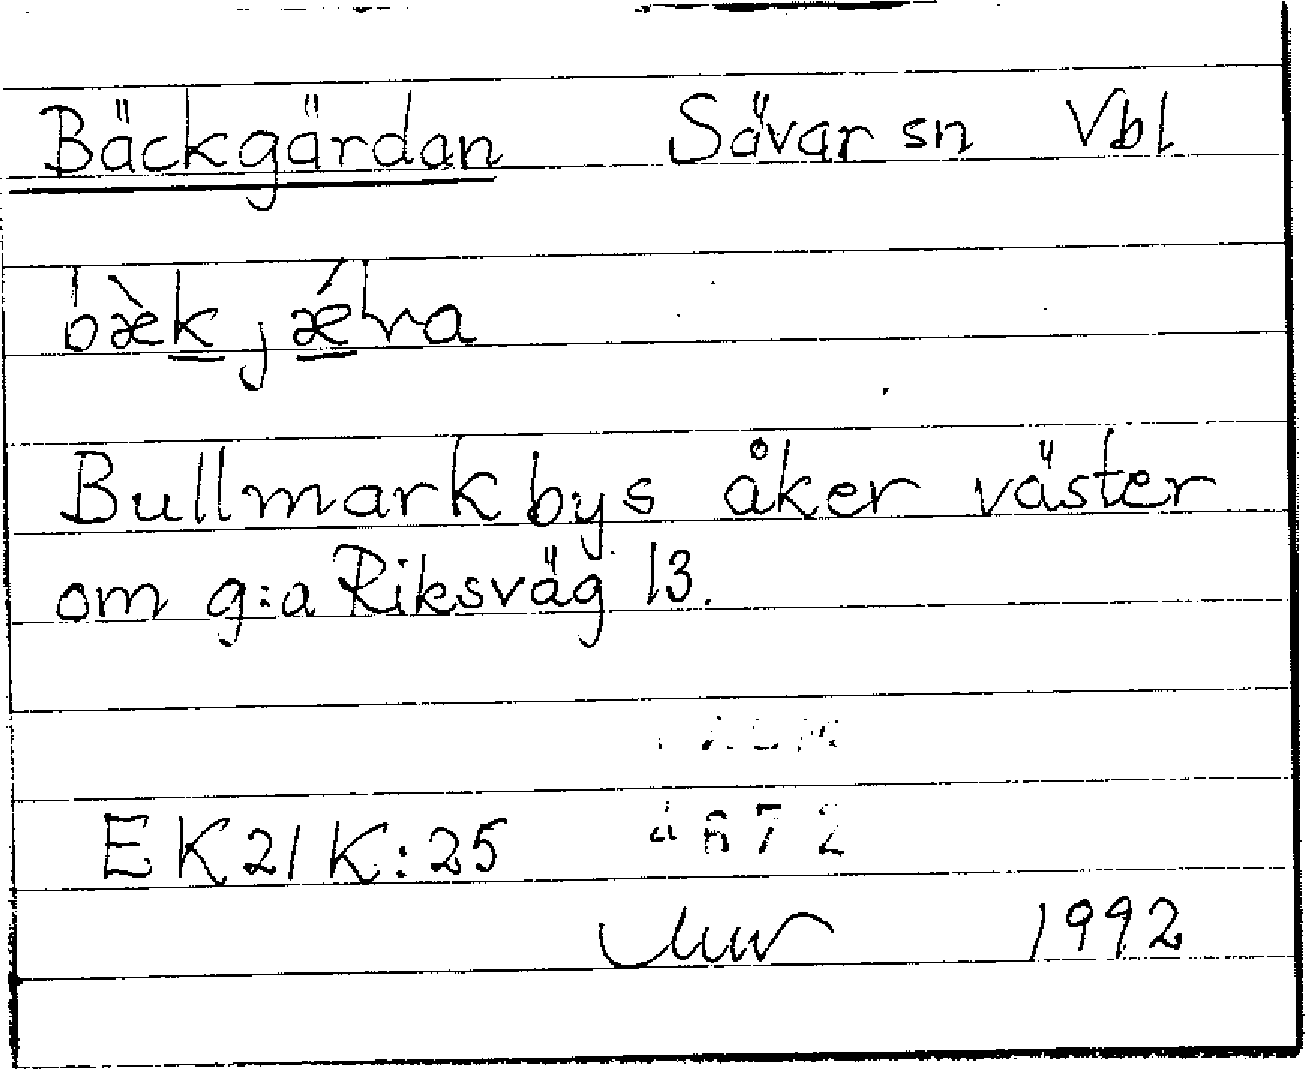 Bäckgärdan Sävar sn Vbl
Bullmark bys åker väster
om g:a Riksväg 13.
EK21K:25
1992